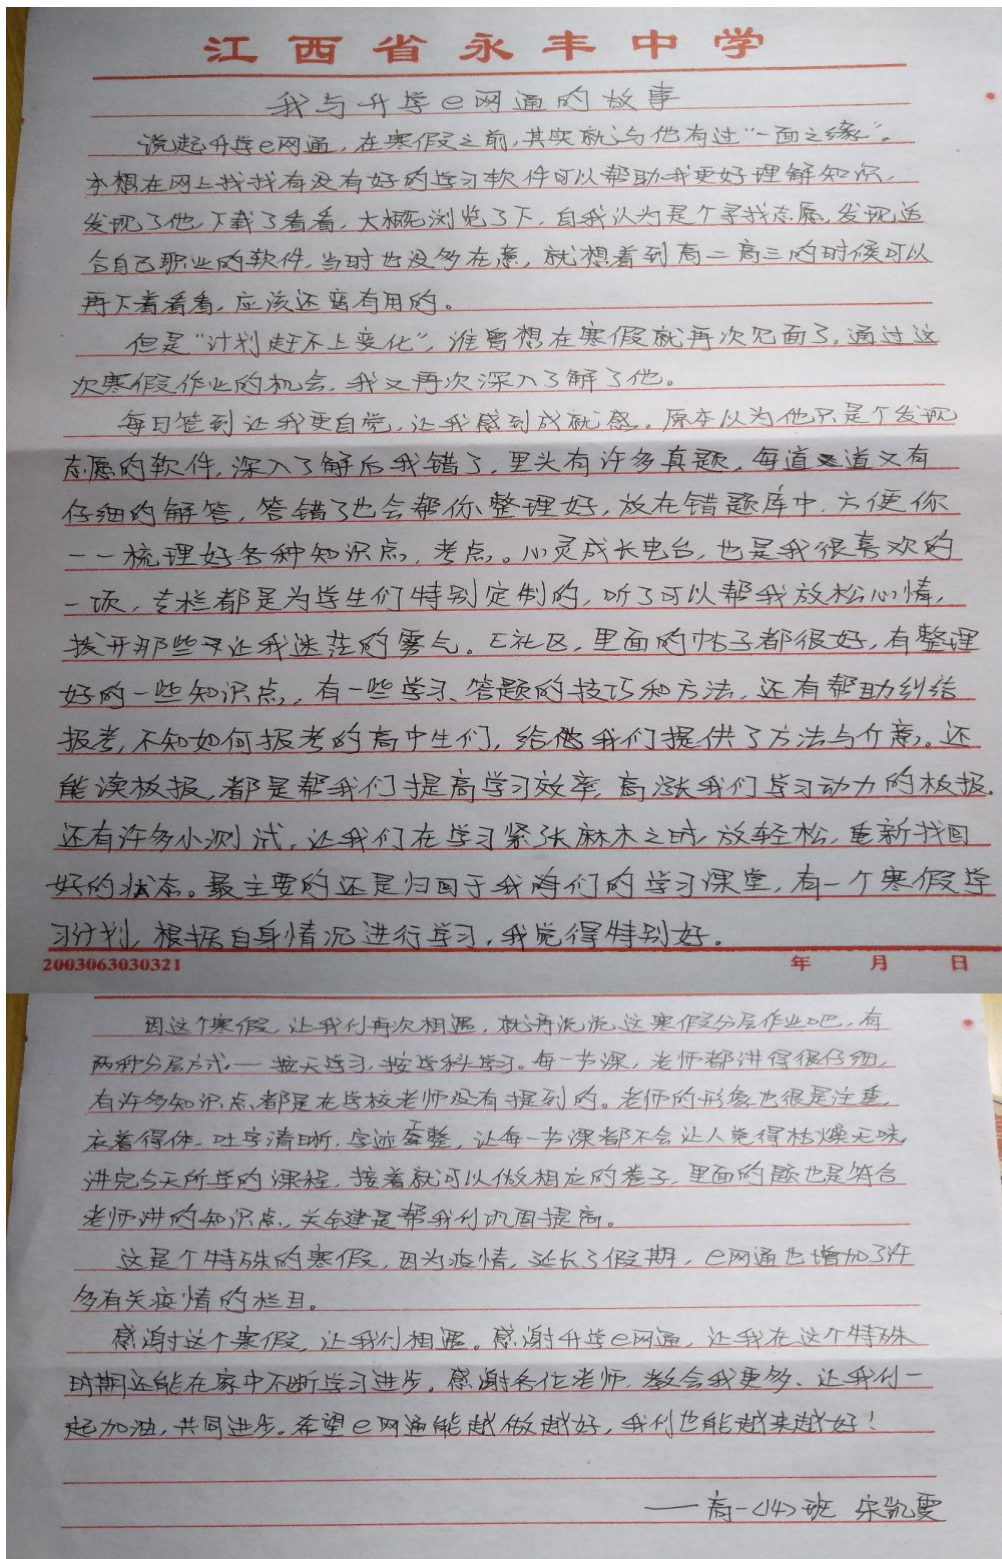 江西省永丰中学
我与升学e网通的故事
说起升学e网通，在寒假之前，其实就与他有过“一面之缘”。
本想在网上找找有没有好的学习软件可以帮助我更好理解知识，
发现了他，下载了看看，大概浏览了下，自我认为是个寻找志愿，发现适
合自己职业的软件，当时也没多在意，就想着到高二高三的时候可以
再下着看看，应该还蛮有用的。
但是“计划赶不上变化”，谁曾想在寒假就再次见面了，通过这
次寒假作业的机会，我又再次深入了解了他。
每日签到让我更自觉，让我感到成就感。原本以为他只是个发现
志愿的软件，深入了解后我错了，里头有许多真题，每道道又有
仔细的解答，答错了也会帮你整理好，放在错题库中，方便你
一一梳理好各种知识点，考点。心灵成长电台，也是我很喜欢的
一项，专栏都是为学生们特别定制的，听了可以帮我放松心情，
拨开那些让我迷茫的雾气。E社区，里面的帖子都很好，有整理
好的一些知识点，有一些学习、答题的技巧和方法，还有帮助纠结
报考，不知如何报考的高中生们，给我们提供了方法与介意。还
能读板报，都是帮我们提高学习效率，高涨我们学习动力的板报。
还有许多小测试，让我们在学习紧张麻木之时，放轻松，重新找回
好的状态。最主要的还是归回于我们的学习课堂，有一个寒假学
习计划，根据自身情况进行学习，我觉得特别好。
2003063030321 年 月 日
因这个寒假，让我们再次相遇，就再说说这寒假分层作业吧，有
两种分层方式——按天学习，按学科学习。每一节课，老师都讲得很仔细，
有许多知识点，都是在学校老师没有提到的。老师的形象也很是注重，
衣着得体，吐字清晰，字迹工整，让每一节课都不会让人觉得枯燥无味，
讲完今天所学的课程，接着就可以做相应的卷子，里面的题也是符合
老师讲的知识点，关键是帮我们巩固提高。
这是个特殊的寒假，因为疫情，延长了假期，e网通也增加了许
多有关疫情的栏目。
感谢这个寒假，让我们相遇。感谢升学e网通，让我在这个特殊
时期还能在家中不断学习进步。感谢各位老师，教会我更多、让我们一
起加油，共同进步。希望e网通能越做越好，我们也能越来越好！
——高一〈14〉班 宋凯雯